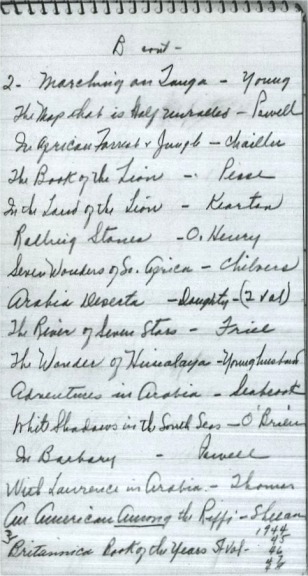 B cont-
2- Marching on Tanga - Young
The Map that is Half Unrolled - Powell
In African Forrest & Jungle - Chaillu
The Book of the Lion - Pease
In the Land of the Lion - Kearton
Rolling Stones - O. Henry
Seven Wonders of So. Africa - Chilvers
Arabia Deserta - Doughty - (2 Vol)
The River of Seven Stars - Friel
The Wonder of Himalaya - Younghusband
Adventures in Arabia - Seabrook
White Shadows in the South Seas - O'Brien
In Barbary - Powell
With Lawrence in Arabia - Thomas
An American Among the Riffi - Sheean
3 Britannica Book of the Years Vol- 1944
45
46